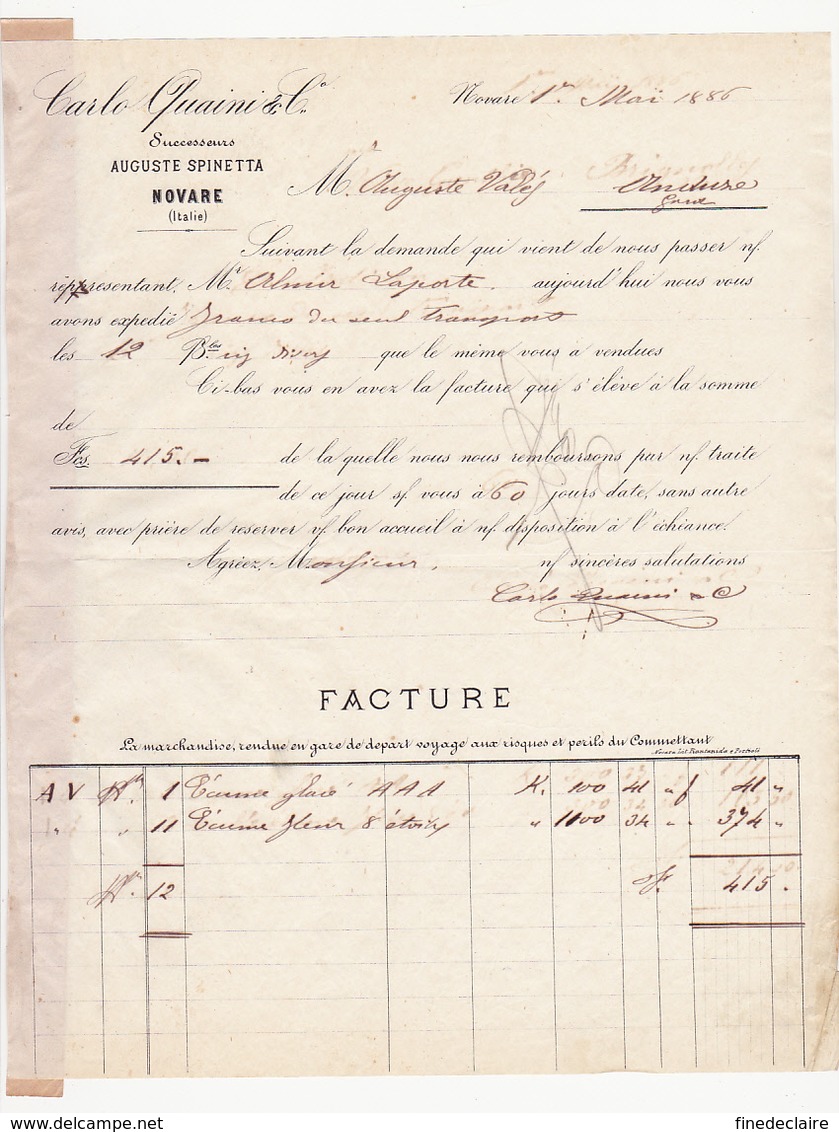 Carlo Quaini & Cº
Novare 1er Maï 1886
Successeurs
AUGUSTE SPINETTA
NOVARE
(Italie)
Mr Auguste Valès Anduze
Gard
Suivant la demande qui vient de nous passer nf.
représentant, Mr. Almir Laporte. aujourd'hui nous vous
avons expedié franco du seul transport
les 12 Blles riz que le même vous à vendues
Ci-bas vous en avez la facture qui s'élève à la somme
de
Fcs. 415.- de la quelle nous nous remboursons par nf. traite
de ce jour sf. vous à 60 jours date, sans autre
avis, avec prière de reserver vf. bon accueil à nf. disposition à l'échéance.
Agréez, Monsieur, nf sincères salutations
Carlo Quaini & C
FACTURE
La marchandise, rendue en gare de depart voyage aux risques et perils du Commettant
AV 1 Écume glacé AAA K. 100 41 " f 41 "
" " 11 Écume fleur 8 étoiles " 1100 34 " " 374 "
12 F. 415 .
www.delcampe.net
finedeclaire